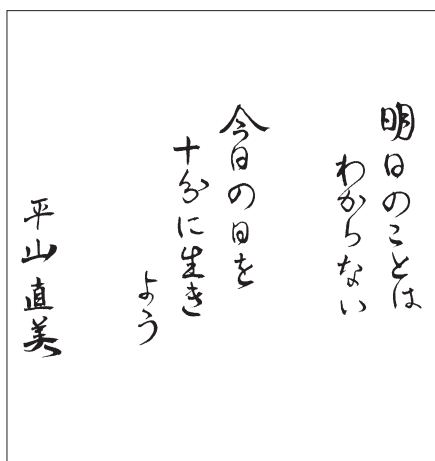 明日のことは
わからない
今日の日を
十分に生き
よう
平山直美